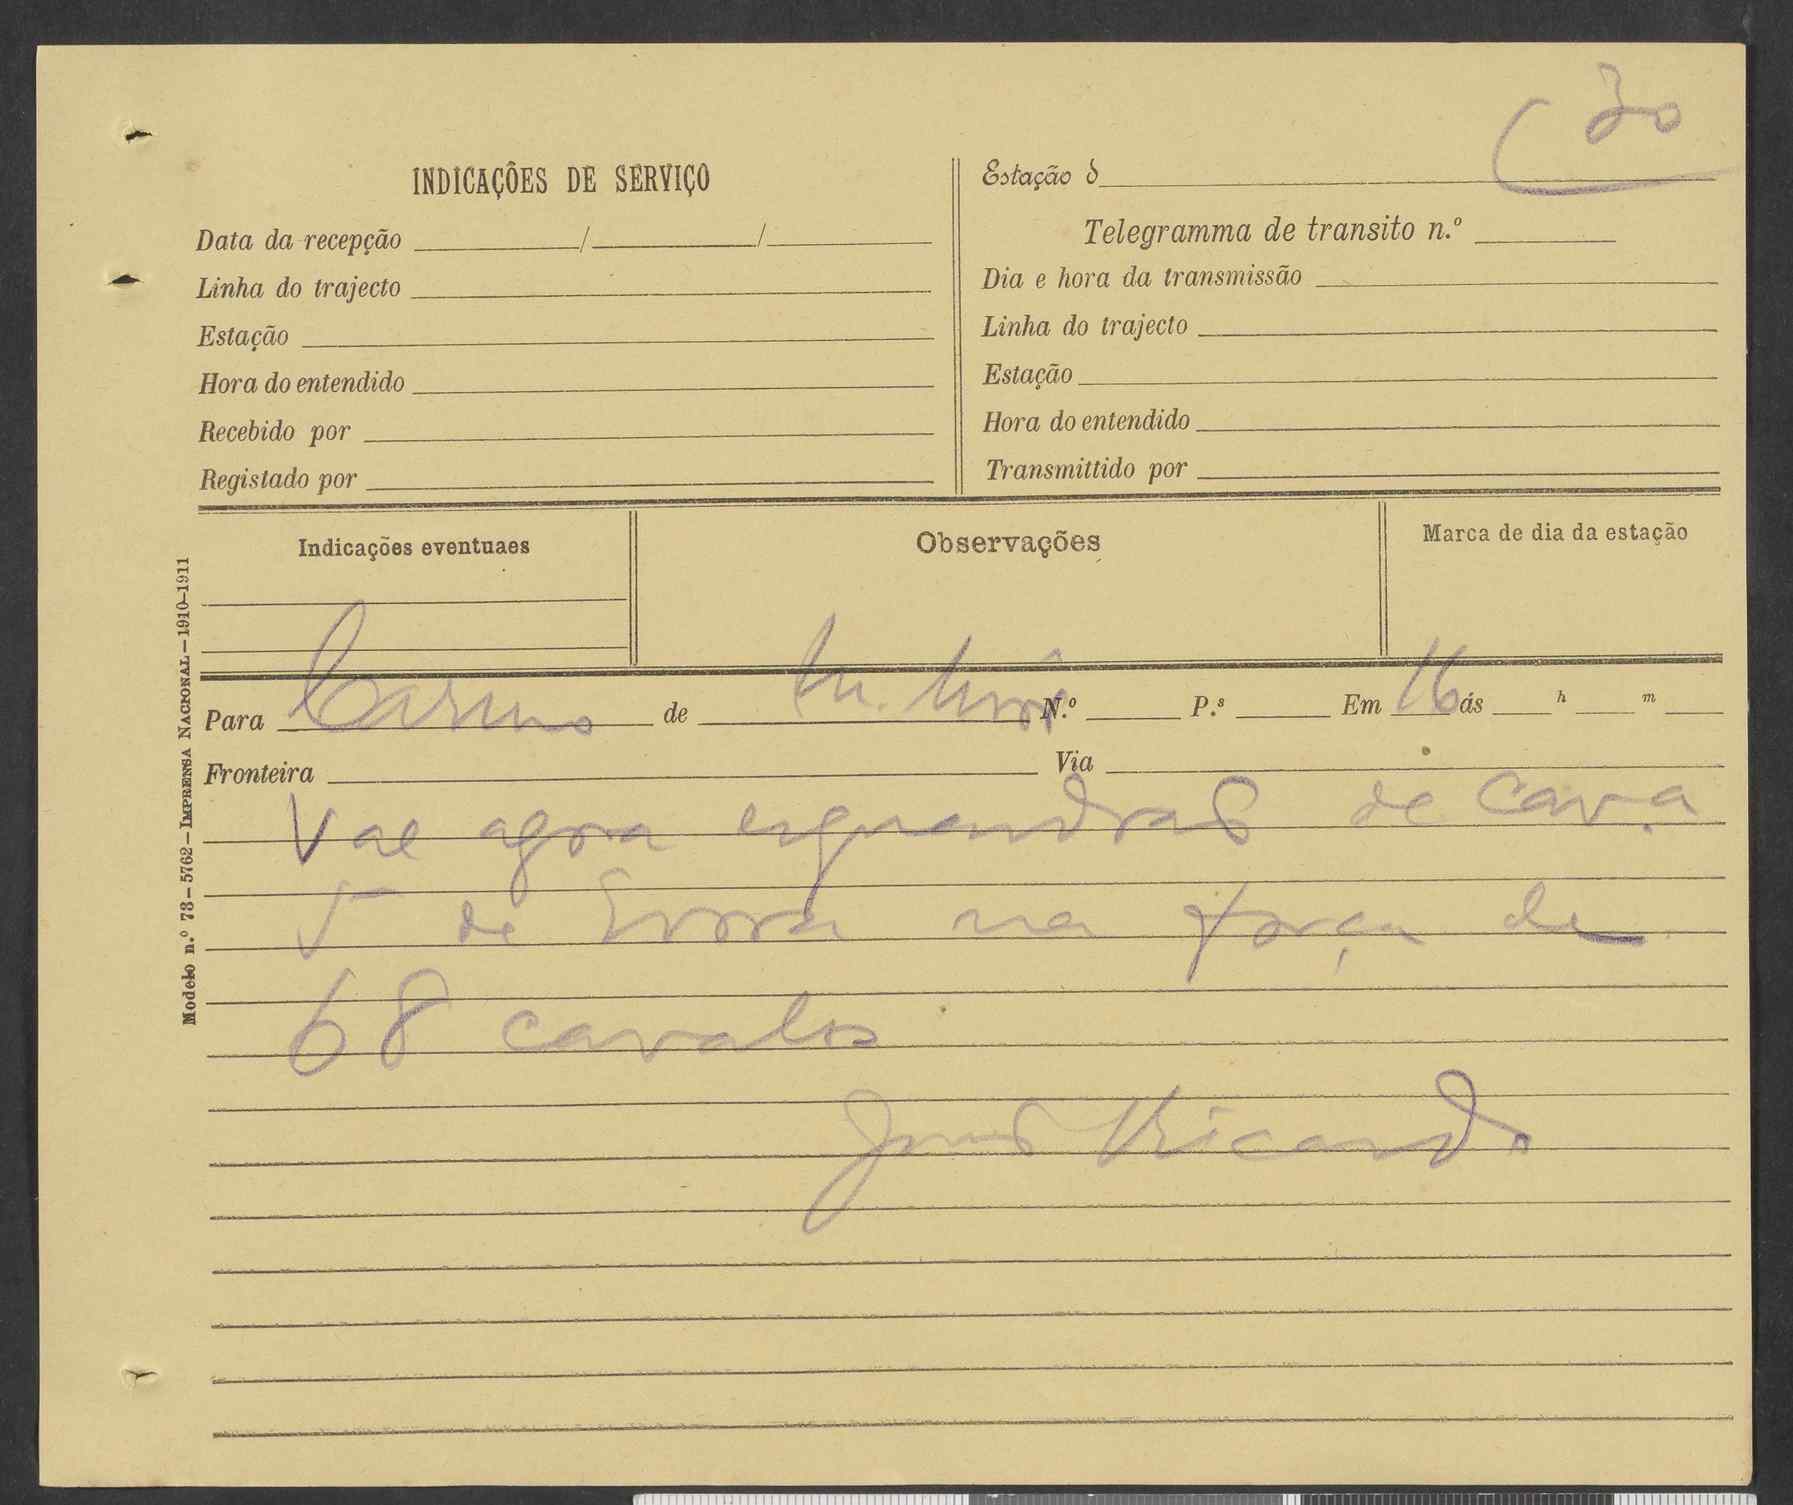 30
INDICAÇÕES DE SERVIÇO
Data da recepção / /
Linha do trajecto
Estação
Hora do entendido
Recebido por
Registado por
Estação d
Telegramma de transito n.º
Dia e hora da transmissão
Linha do trajecto
Estação
Hora do entendido
Transmittido por
Indicações eventuaes
Observações
Marca de dia da estação
Para Carmo de N.º P.s Em 16 ás h m
Fronteira Via
Vae agora esquandras de Cav.a
5 de Evora na força de
68 cavalos
Ricardo
Modelo n.º 73–5762–IMPRENSA NACIONAL–1910–1911